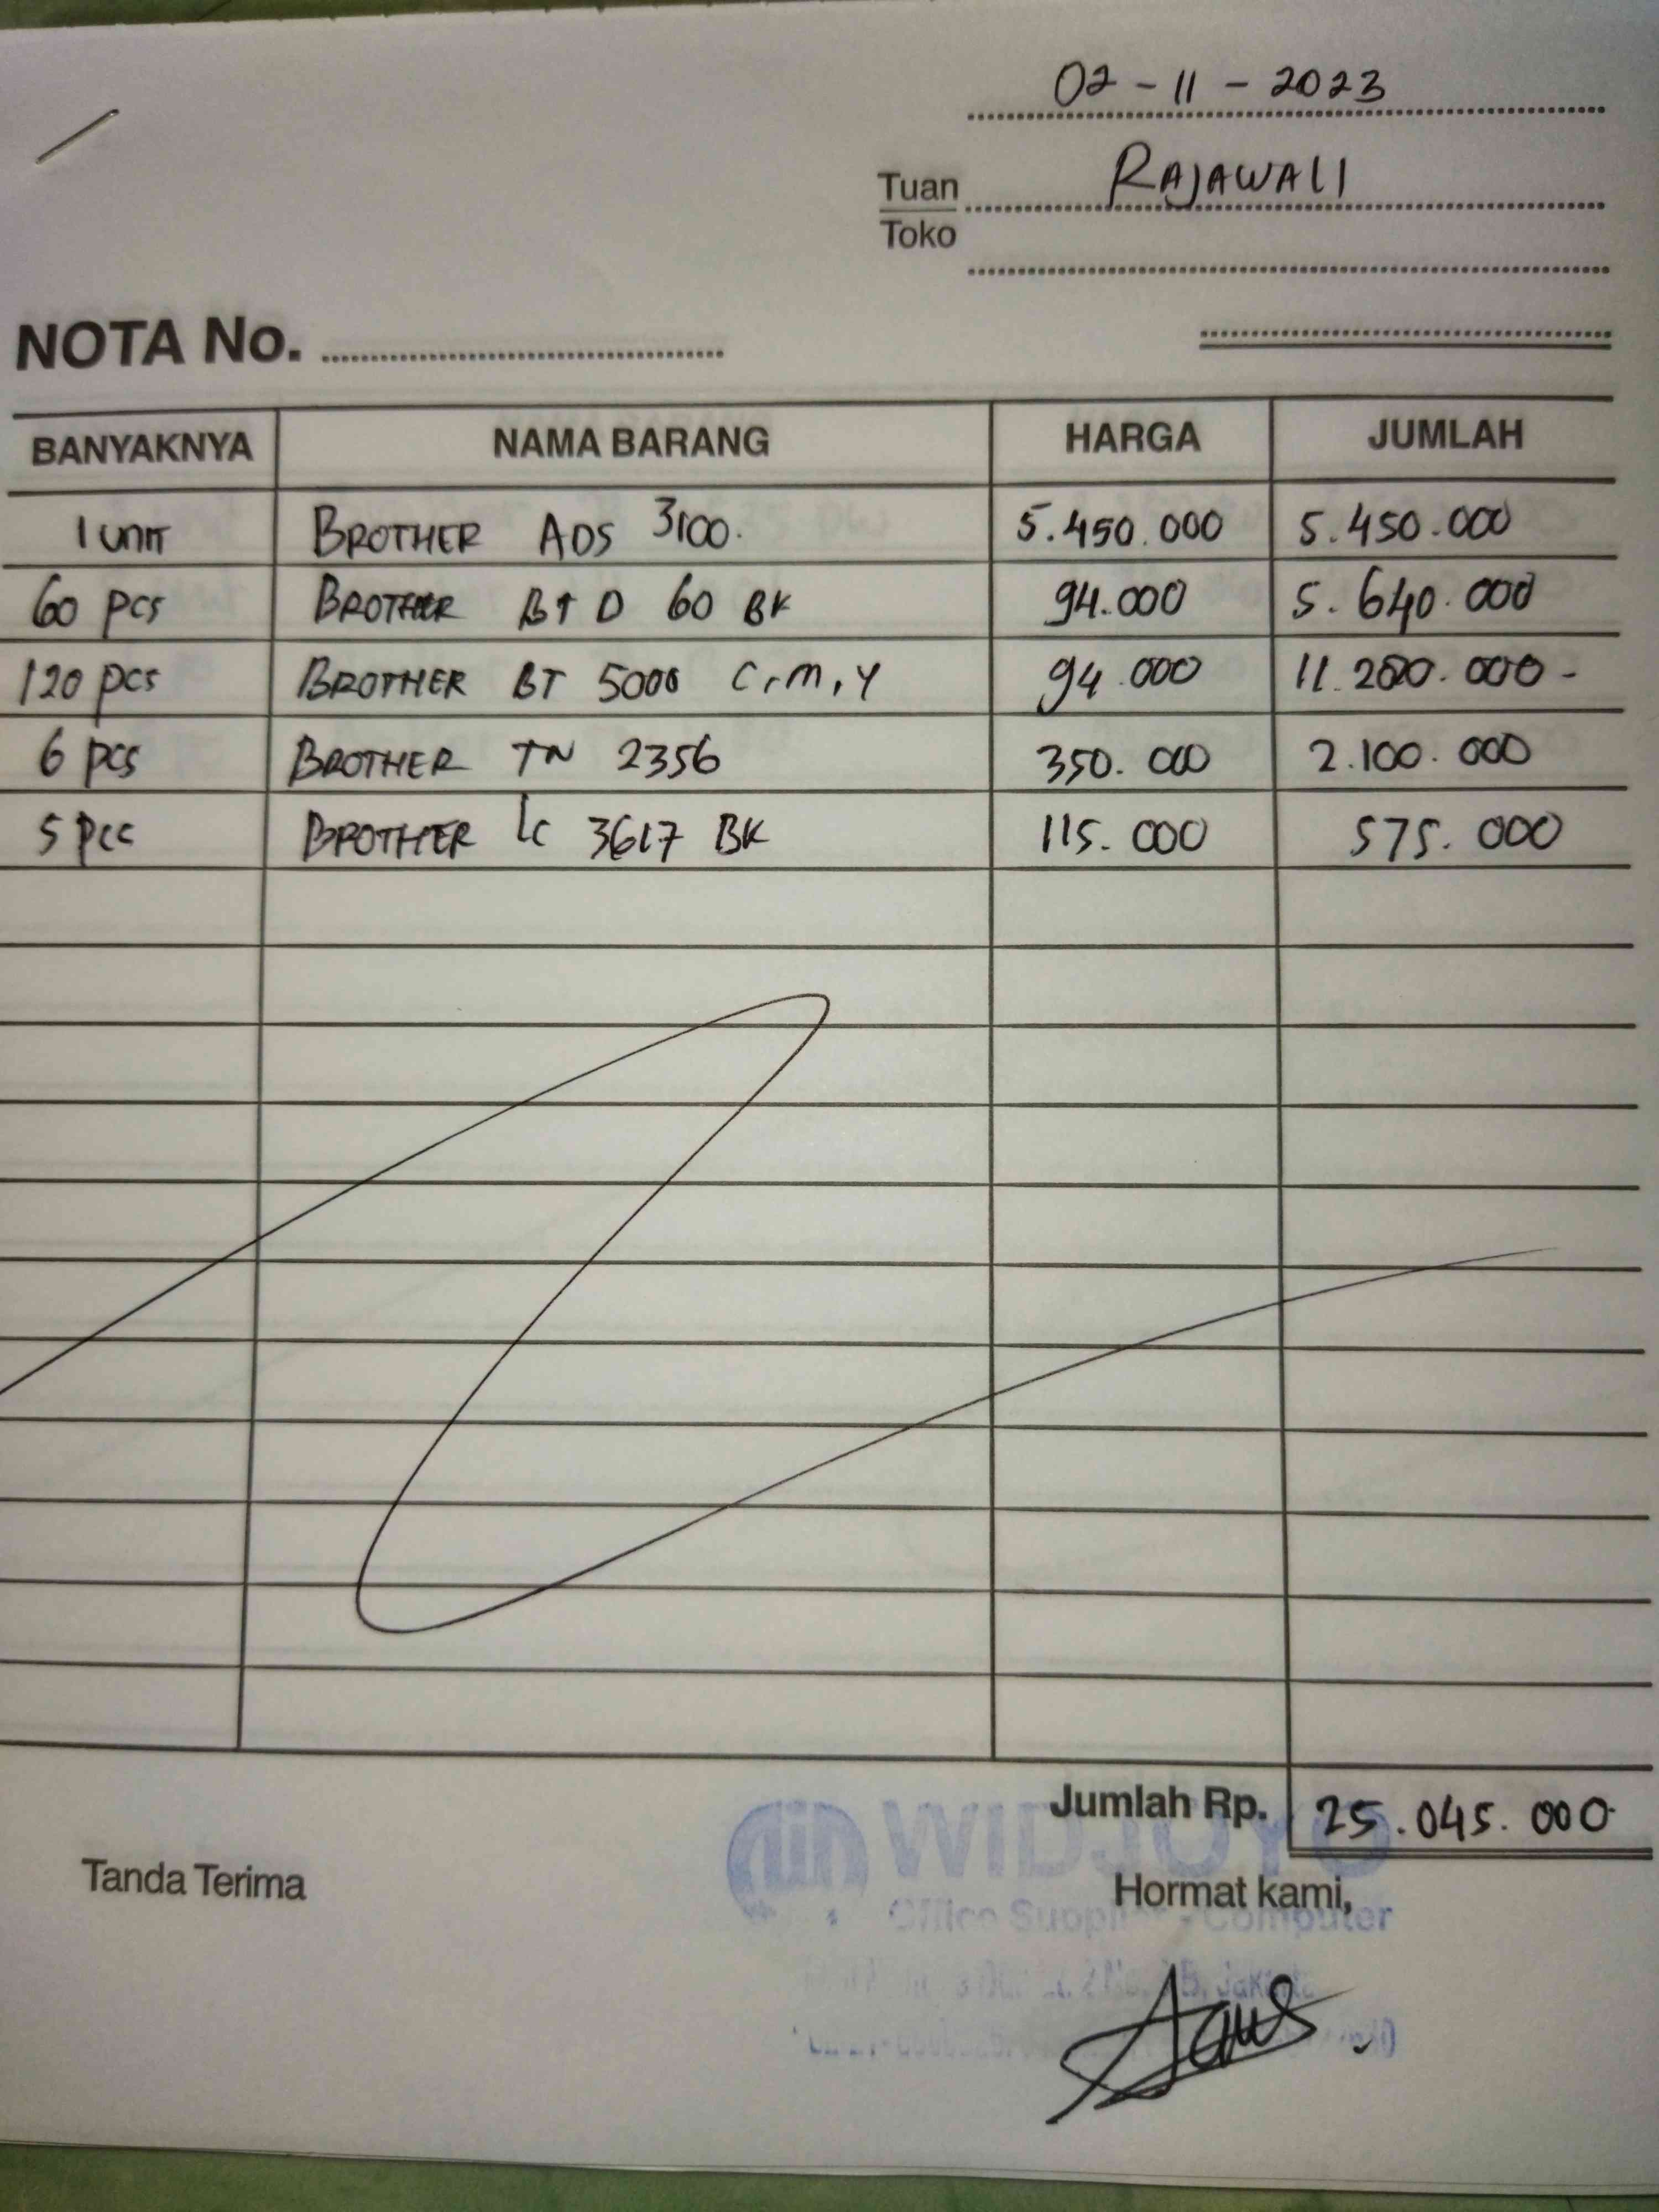 02 - 11 - 2023
Tuan RAJAWALI
Toko
NOTA No.
BANYAKNYA NAMA BARANG HARGA JUMLAH
1 UNIT BROTHER ADS 3100. 5.450.000 5.450.000
60 pcs BROTHER BT D 60 BK 94.000 5.640.000
120 pcs BROTHER BT 5000 C,M,Y 94.000 11.280.000-
6 pcs BROTHER TN 2356 350.000 2.100.000
5 pcs BROTHER LC 3617 BK 115.000 575.000
Jumlah Rp. 25.045.000
WIDJOYO
Tanda Terima Hormat kami,
Office Supplies - Computer
Jakarta